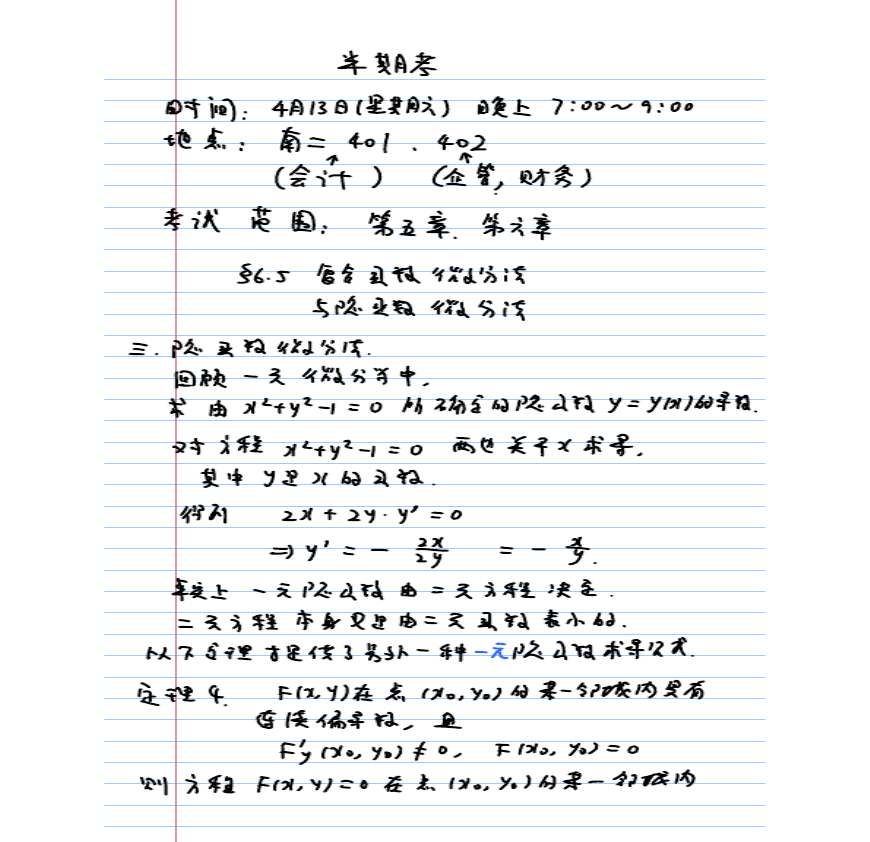 半期考
时间: 4月13日(星期六) 晚上 7:00~9:00
地点: 南二 401 、 402
(会计) (企管, 财务)
考试 范围: 第五章、第六章
§6.5 复合函数微分法
与隐函数微分法
三.隐函数微分法.
回顾一元微分学中,
求由 x²+y²-1=0 所确定的隐函数 y=y(x)的导数.
对方程 x²+y²-1=0 两边关于x求导,
其中 y是x的函数.
得到 2x+2y·y'=0
⇒ y' = - 2x/2y = - x/y.
事实上 一元隐函数由二元方程决定.
二元方程本身又是由二元函数表示的.
以下定理就是给了另外一种一元隐函数求导公式.
定理4. F(x,y)在点(x₀,y₀)的某一邻域内具有
连续偏导数, 且
F'y(x₀,y₀)≠0, F(x₀,y₀)=0
则方程 F(x,y)=0 在点(x₀,y₀)的某一邻域内